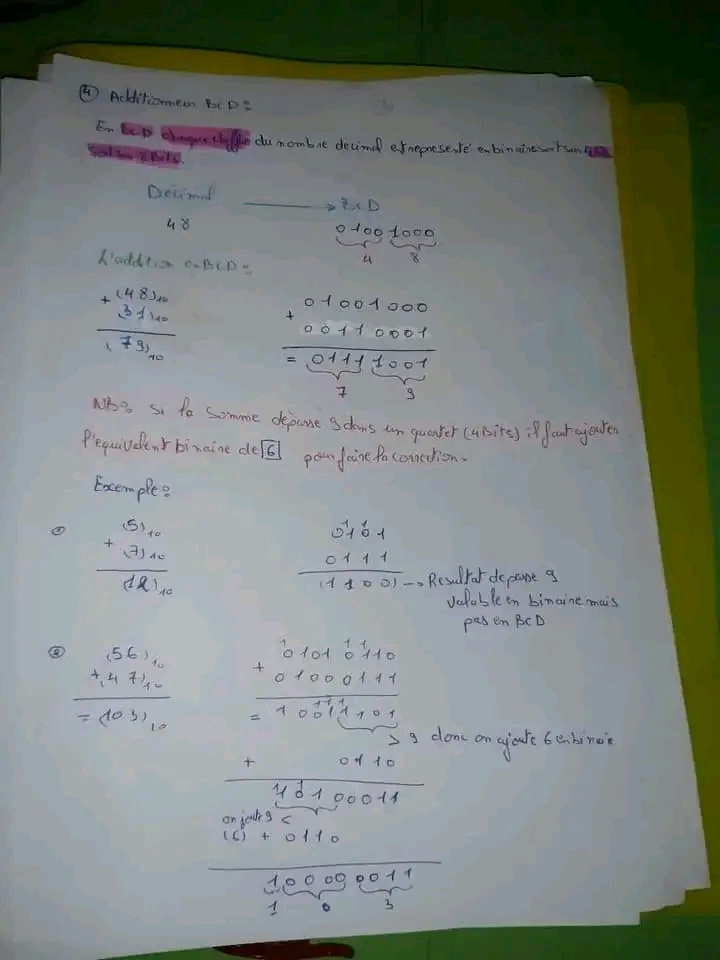 ④ Additionneur BCD:
En BCD chaque chiffre du nombre decimal est representé en binaire soit sur 4
soit sur 8 Bits.
Décimal → BCD
48 0100 1000
4 8
L'addition en BCD:
(48)10 01001000
+ 31)10 + 00110001
(79)10 = 01111001
7 9
NB: si la somme dépasse 9 dans un quartet (4 Bits) il faut ajouter
l'equivalent binaire de 6 pour faire la correction.
Exemple:
① (5)10 1 1 0101
+ (7)10 0111
(12)10 (1100) → Resultat depasse 9
valable en binaire mais
pas en BCD
② (56)10 1 1 1 0101 0110
+(47)10 + 01000111
= (103)10 = 1 1 1 10011101
> 9 donc on ajoute 6 en binaire
+ 0110
10100011
on ajoute 9 <
(6) + 0110
100000011
1 0 3